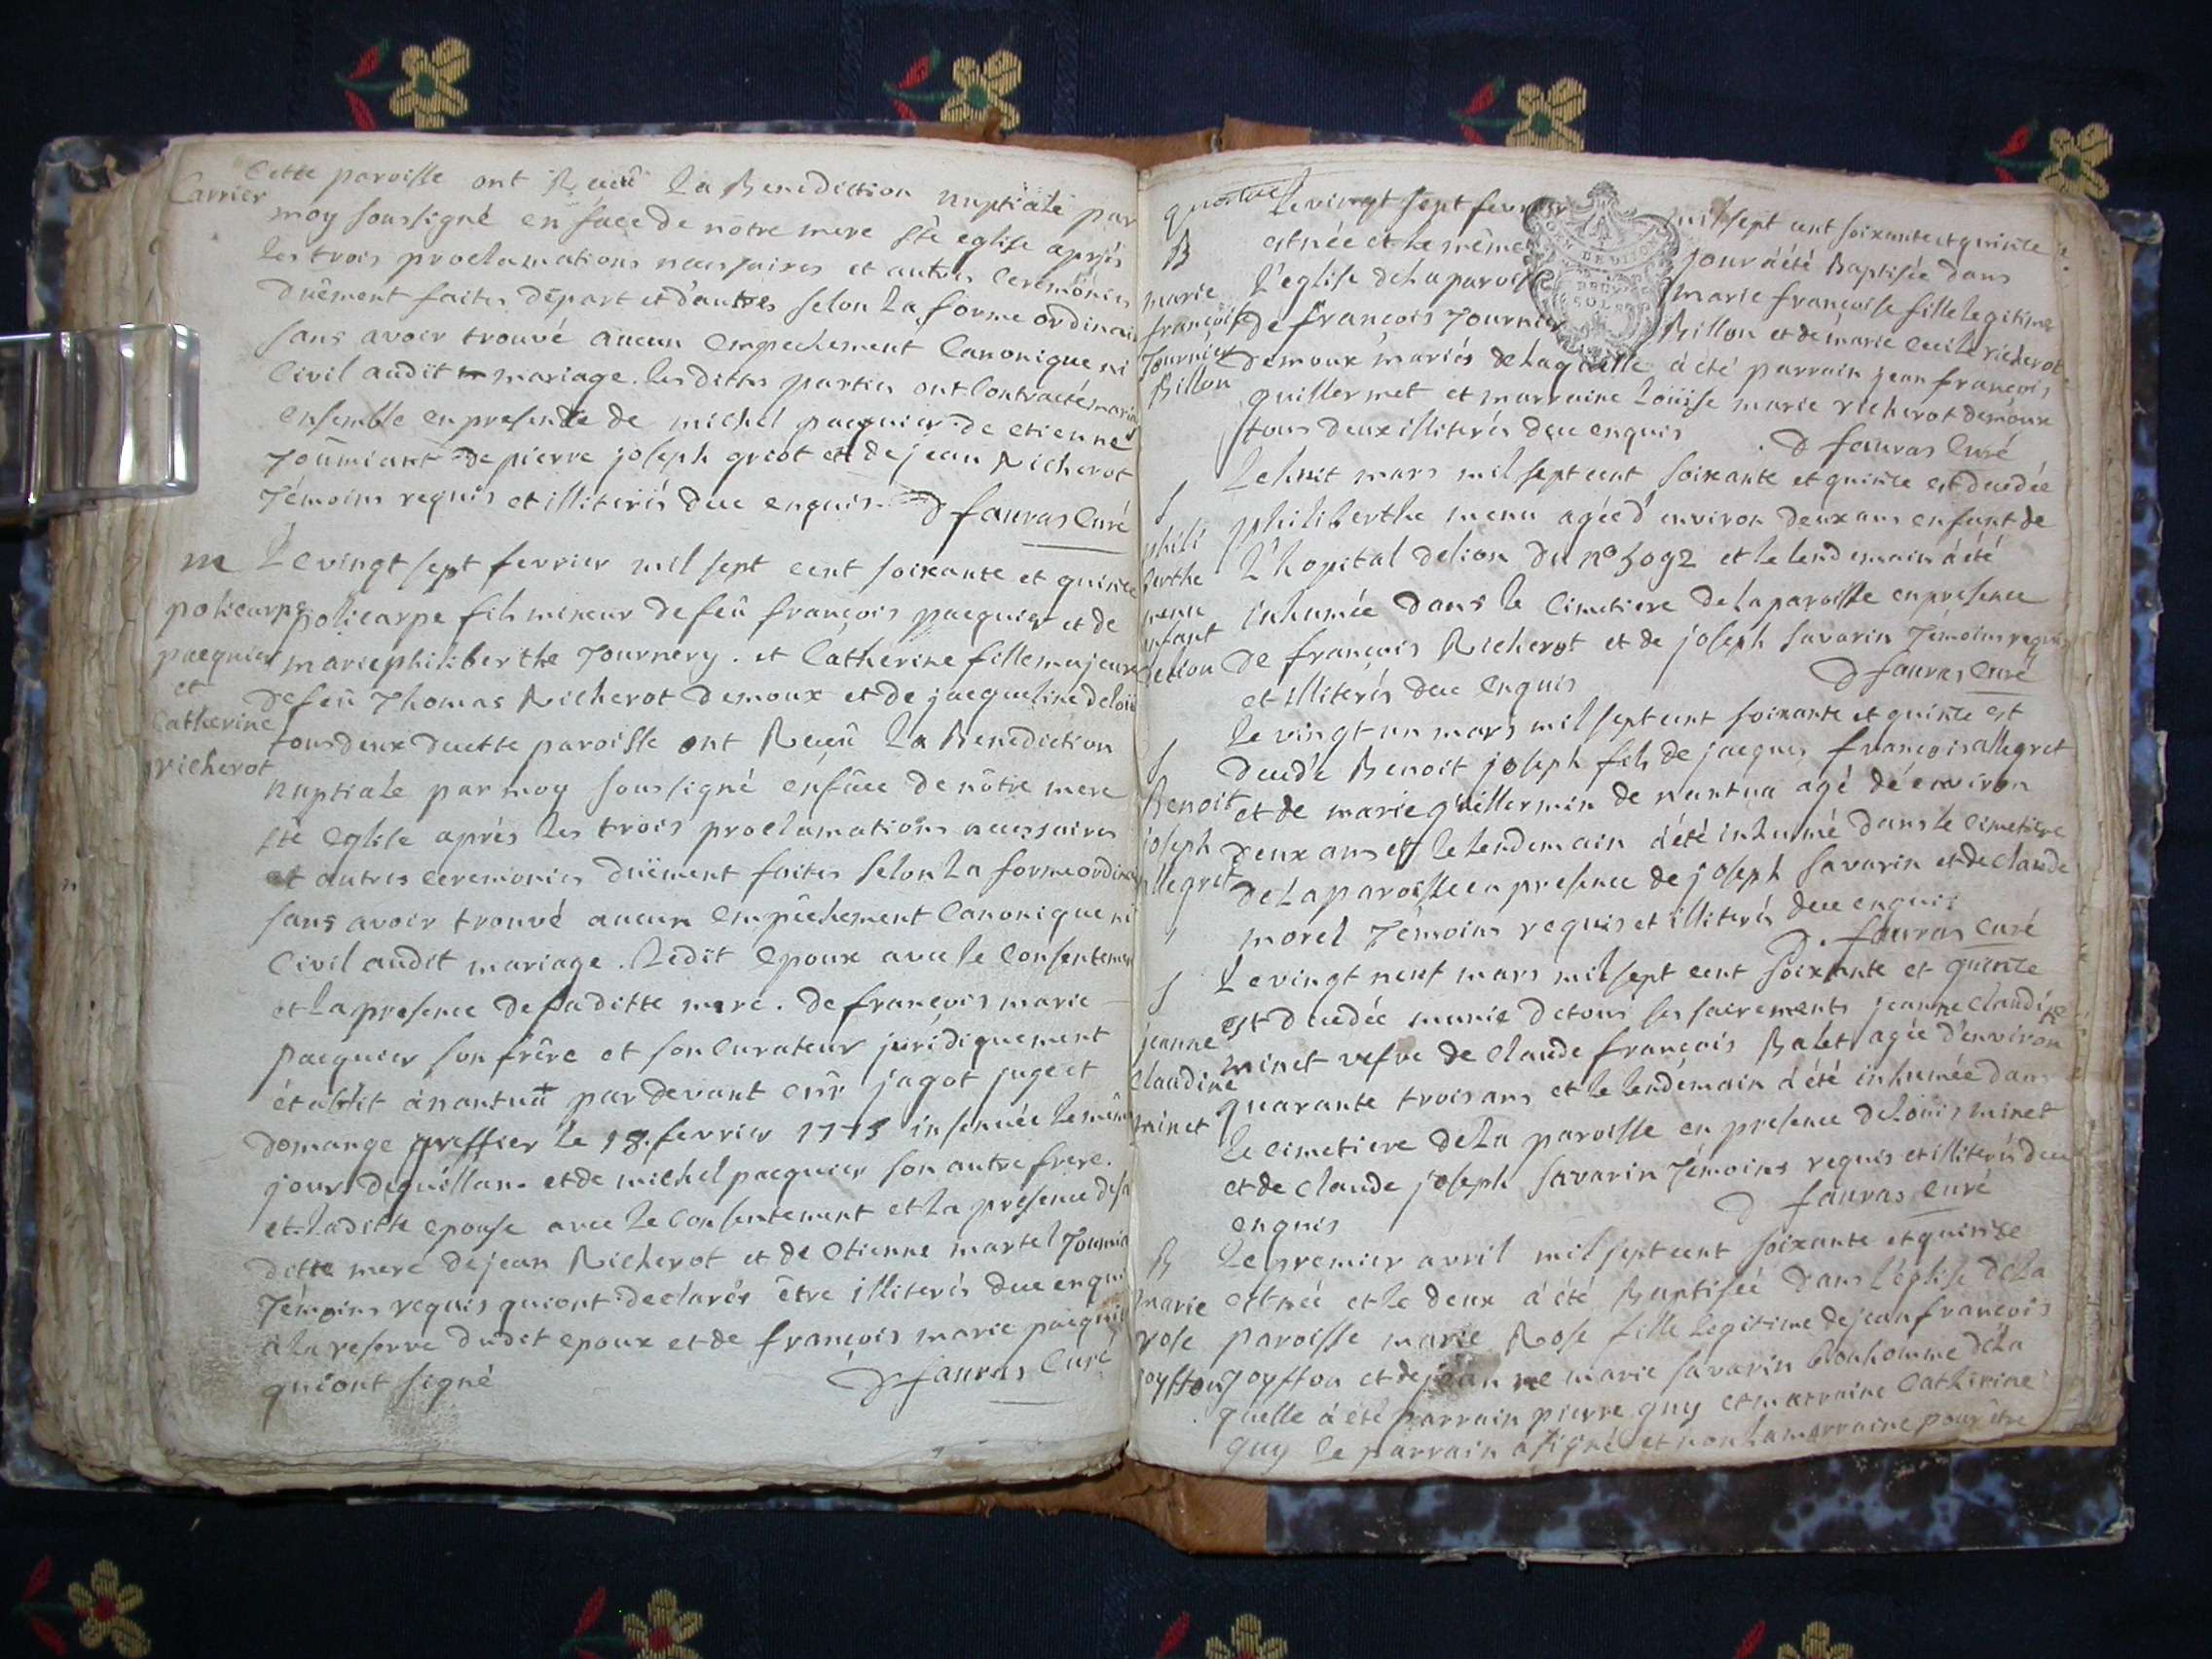 Cette paroisse ont Recû la Benediction nuptiale par
Carrier
moy soussigné en face de nôtre mere Ste eglise aprés
les trois proclamations necessaires et autres Ceremonies
Duêment faites départ et d'autres selon la forme ordinai
sans avoir trouvé aucun Empechement Canonique ni
Civil audit mariage. les dittes parties ont Contracté maria
ensemble en presence de michel pacquier de etienne
Joûmiant de pierre joseph griot et de jean Richerot
Témoins requis et illiterés dece enquis. D fauras Curé
m
policarpe
pacquier
et
Catherine
richerot
Le vingt sept fevrier mil sept cent soixante et quinze
policarpe fils mineur de feû françois pacquier et de
marie philiberthe Tournery. et Catherine fille majeure
de feû Thomas Richerot Demoux et de jacqueline deloü
tous deux decette paroisse ont Recû la Benediction
nuptiale par moy soussigné enface de nôtre mere
ste Eglise aprés les trois proclamations necessaires
et autres ceremonies duëment faites selon la forme ordina
sans avoir trouvé aucun Empêchement Canonique ni
Civil audit mariage. Ledit Epoux avec le Consentemen
et la presence de saditte mere. de françois marie
pacquier son frêre et son Curateur juridiquement
établit á nantua par devant jagot juge et
domange greffier le 18 fevrier 1775 insinuée le même
jour deguillan. et de michel pacquier son autre frere.
et laditte epouse avec le Consentement et la presence desa
ditte mere de jean Richerot et de Etienne martel Joumia
Témoins requis qui ont declarés être illiterés dece enqui
a la reserve dudit epoux et de françois marie pacquie
qui ont signé D fauras Curé
B
marie
françoise
Tournier
Billon
Le vingt sept fevrier mil sept cent soixante et quinze
est née et le même jour á été Baptisée dans
l'eglise de la paroisse marie françoise fille legitime
de françois Tournier Billon et de marie Cecile richerot
demoux mariés delaquelle á été parrain jean françois
guillermet et marraine Loüise marie richerot demoux
tous deux illiterés dece enquis D fauras Curé
S
phili
berthe
menu
enfant
delion
Le huit mars mil sept cent soixante et quinze est decedée
philiberthe menu agée d'environ deux ans enfant de
L'hopital delion du nº 5092 et le lendemain á été
inhumée dans le Cimetiere de la paroisse en presence
de françois Richerot et de joseph savarin Témoins requis
et illiterés dece enquis D fauras Curé
S
Benoit
joseph
allegret
le vingt un mars mil sept cent soixante et quinze est
decedé Benoit joseph fils de jacques françois allegret
et de marie guillermin de nantua agé dé environ
deux ans et le lendemain á été inhumé dans le Cimetiere
de la paroisse en presence de joseph savarin et de claude
morel Témoins requis et illiterés dece enquis
D. fauras Curé
S
jeanne
Claudine
minet
Le vingt neuf mars mil sept cent soixante et quinze
est decedée munie de tous les sacrements jeanne Claudine
minet vefve de Claude françois Balet agée d'environ
quarante trois ans et le lendemain á été inhumée dans
le cimetiere de la paroisse en presence deloüis minet
et de claude joseph savarin Témoins requis et illiterés dece
enquis D fauras Curé
B
marie
rose
joyffon
Le premier avril mil sept cent soixante et quinze
est née et le deux á été Baptisée dans l'église de la
paroisse marie Rose fille legitime de jean françois
joyffon et de jeanne marie savarin bonhomme dela
quelle á été parrain pierre guy et marraine Catherine
guy le parrain á signé et non la marraine pour être